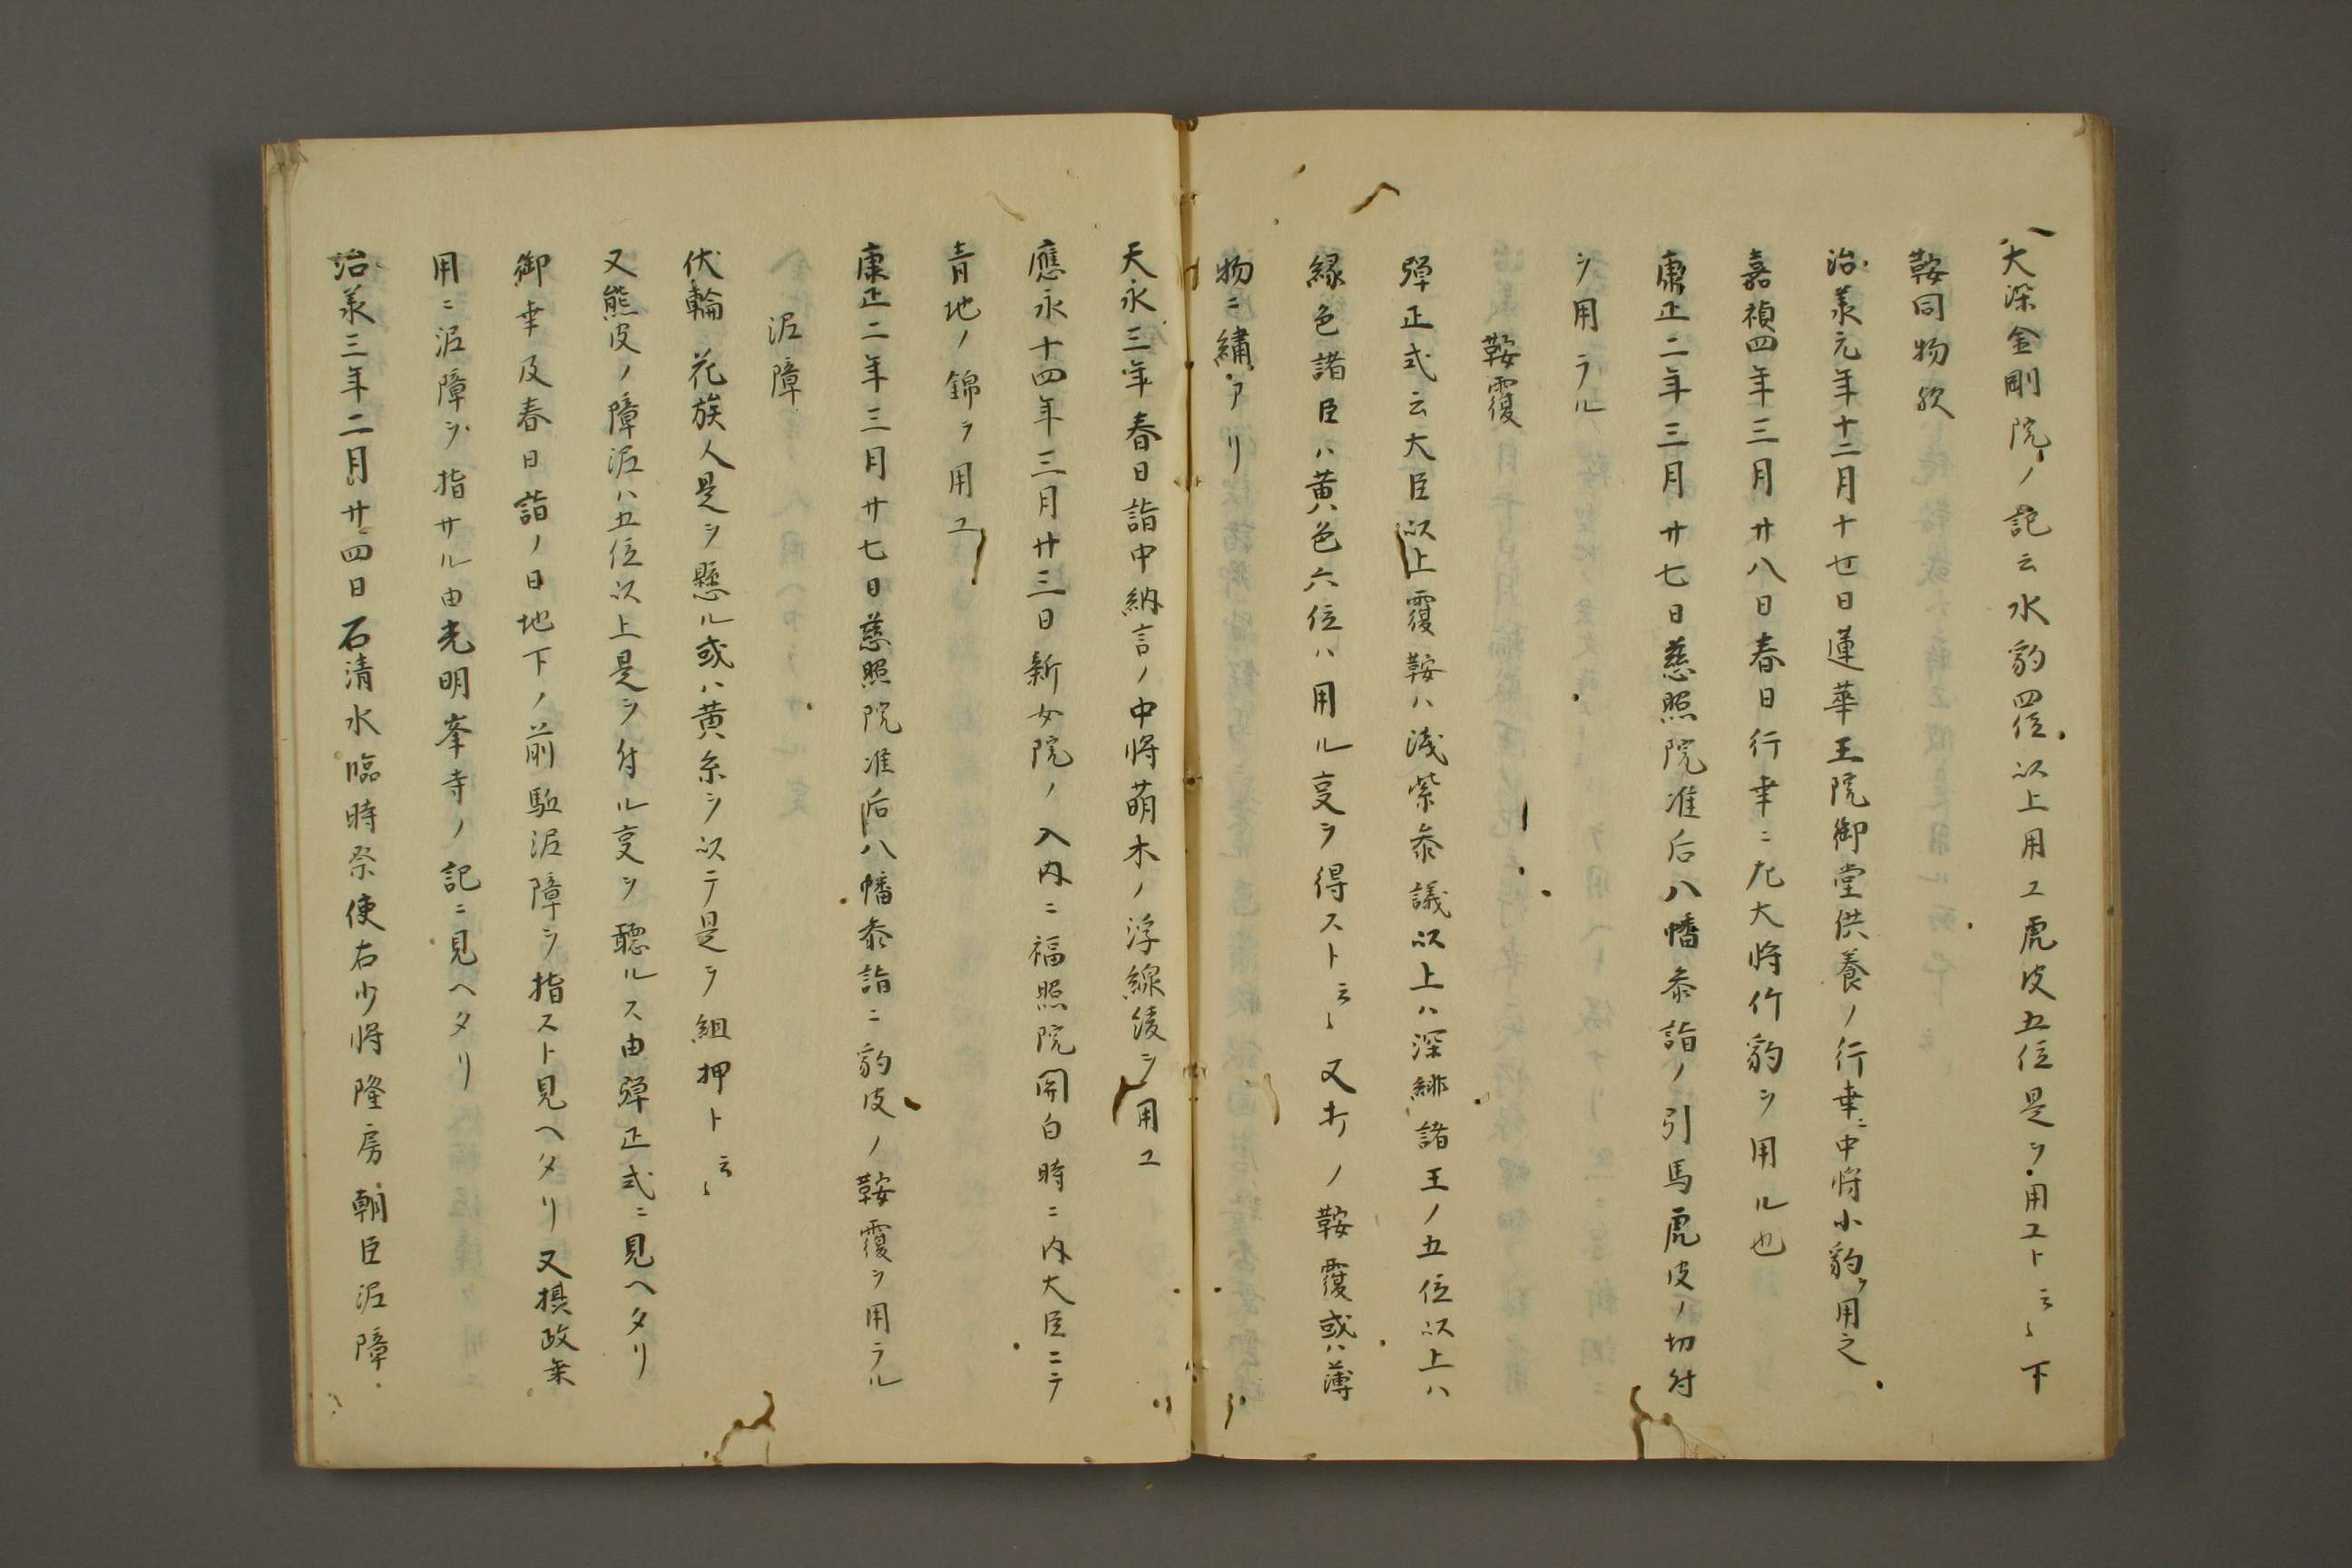 大深金剛院ノ記云水豹四位以上用ユ虎皮五位是ヲ用ユト云〻下
鞍同物歟
治承元年十二月十七日蓮華王院御堂供養ノ行幸ニ中将小豹ヲ用之
嘉禎四年三月廿八日春日行幸ニ左大将竹豹ヲ用ル也
康正二年三月廿七日慈照院准后八幡参詣ノ引馬虎皮ノ切付
ヲ用ラル
鞍覆
弾正式云大臣以上覆鞍ハ浅紫参議以上ハ深緋諸王ノ五位以上ハ
縁色諸臣ハ黄色六位ハ用ル㕝ヲ得スト云〻又ノ鞍覆或ハ薄
物ニ繍アリ
天永三年春日詣中納言ノ中将萌木ノ浮線綾ヲ用ユ
應永十四年三月廿三日新女院ノ入内ニ福照院関白時ニ内大臣ニテ
青地ノ錦ヲ用ユ
康正二年三月廿七日慈照院准后八幡参詣ニ豹皮ノ鞍覆ヲ用ラル
泥障
伏輪花族人是ヲ懸ル或ハ黄糸ヲ以テ是ヲ組押ト云〻
又熊皮ノ障泥ハ五位以上是ヲ付ル㕝ヲ聴ルス由弾正式ニ見ヘタリ
御幸及春日詣ノ日地下ノ前駈泥障ヲ指スト見ヘタリ又摂政乗
用ニ泥障ヲ指サル由光明峯寺ノ記ニ見ヘタリ
治承三年二月廿四日石清水臨時祭使右少将隆房朝臣泥障